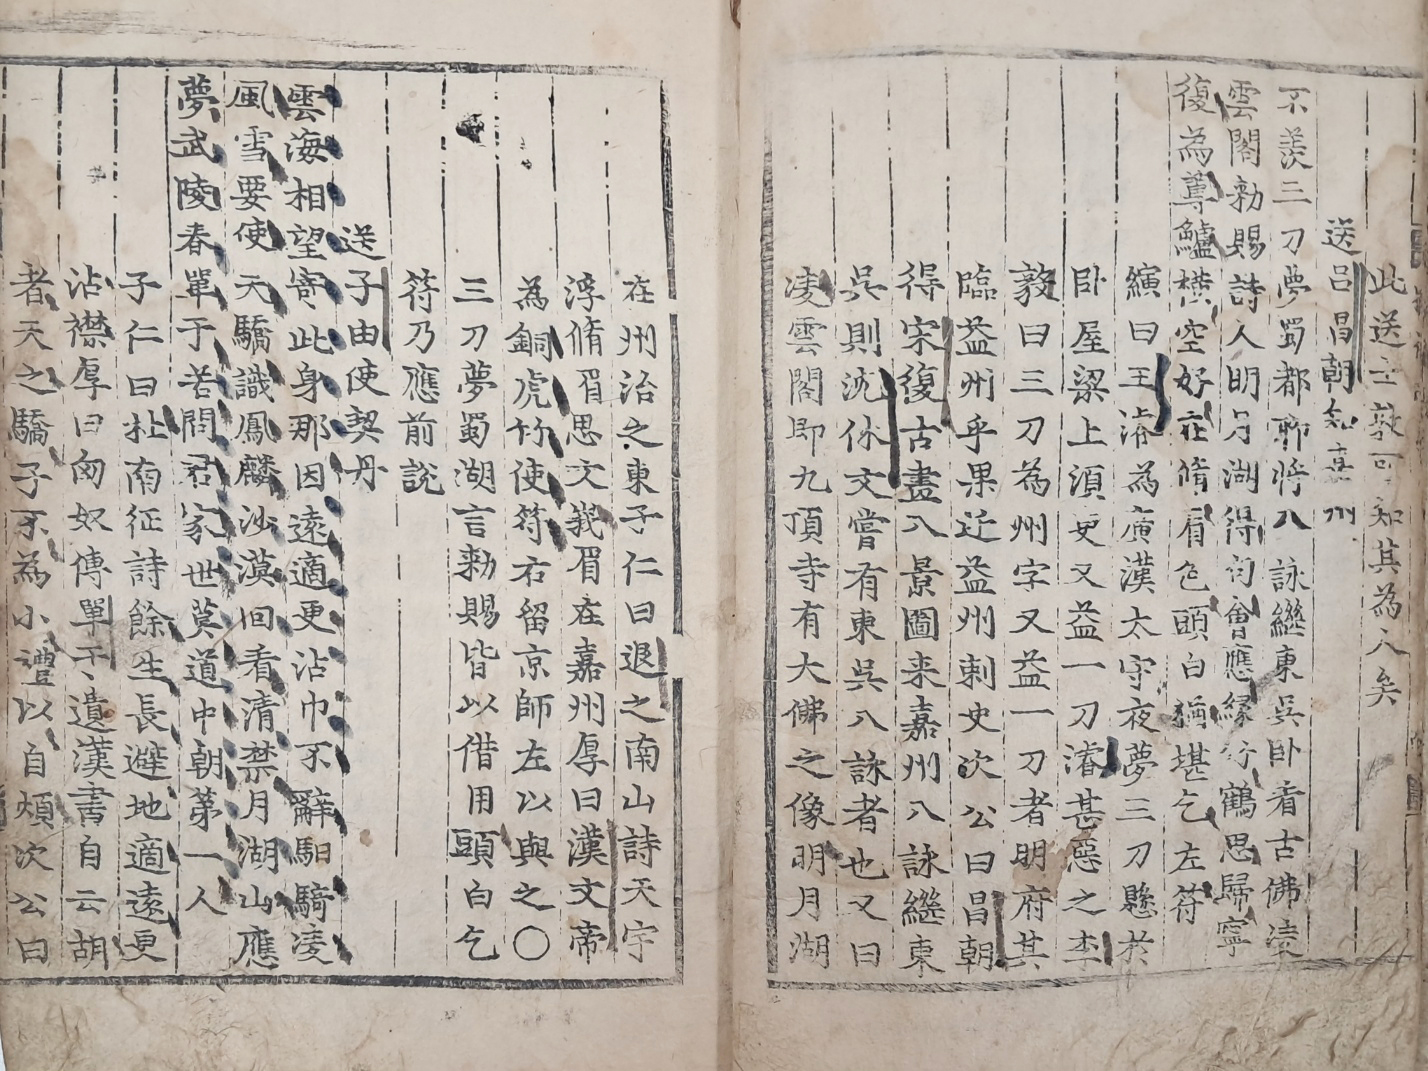 此送士敦可知其為人矣
送呂昌朝知嘉州
不羨三刀夢蜀都聊將八詠繼東吳卧看古佛凌
雲閣勑賜詩人明月湖得句會應緣竹鶴思歸寧
復為蓴鱸橫空好在脩眉色頭白猶堪乞左符
縯曰王濬為廣漢太守夜夢三刀懸於
卧屋梁上須臾又益一刀濬甚惡之李
毅曰三刀為州字又益一刀者明府其
臨益州乎果迁益州刺史次公曰昌朝
得宋復古畫八景圖来嘉州八詠繼東
吳則沈休文嘗有東吳八詠者也又曰
凌雲閣即九頂寺有大佛之像明月湖
在州治之東子仁曰退之南山詩天宇
浮脩眉思文峩眉在嘉州厚曰漢文帝
為銅虎竹使符右留京師左以與之〇
三刀夢蜀湖言勑賜皆以借用頭白乞
符乃應前說
送子由使契丹
雲海相望寄此身那因遠適更沾巾不辭馹騎凌
風雪要使天驕識鳳麟沙漠回看清禁月湖山應
夢武陵春單于若問君家世莫道中朝第一人
子仁曰杜南征詩餘生長避地適遠更
沾襟厚曰匈奴傳單于遺漢書自云胡
者天之驕子不為小禮以自煩次公曰